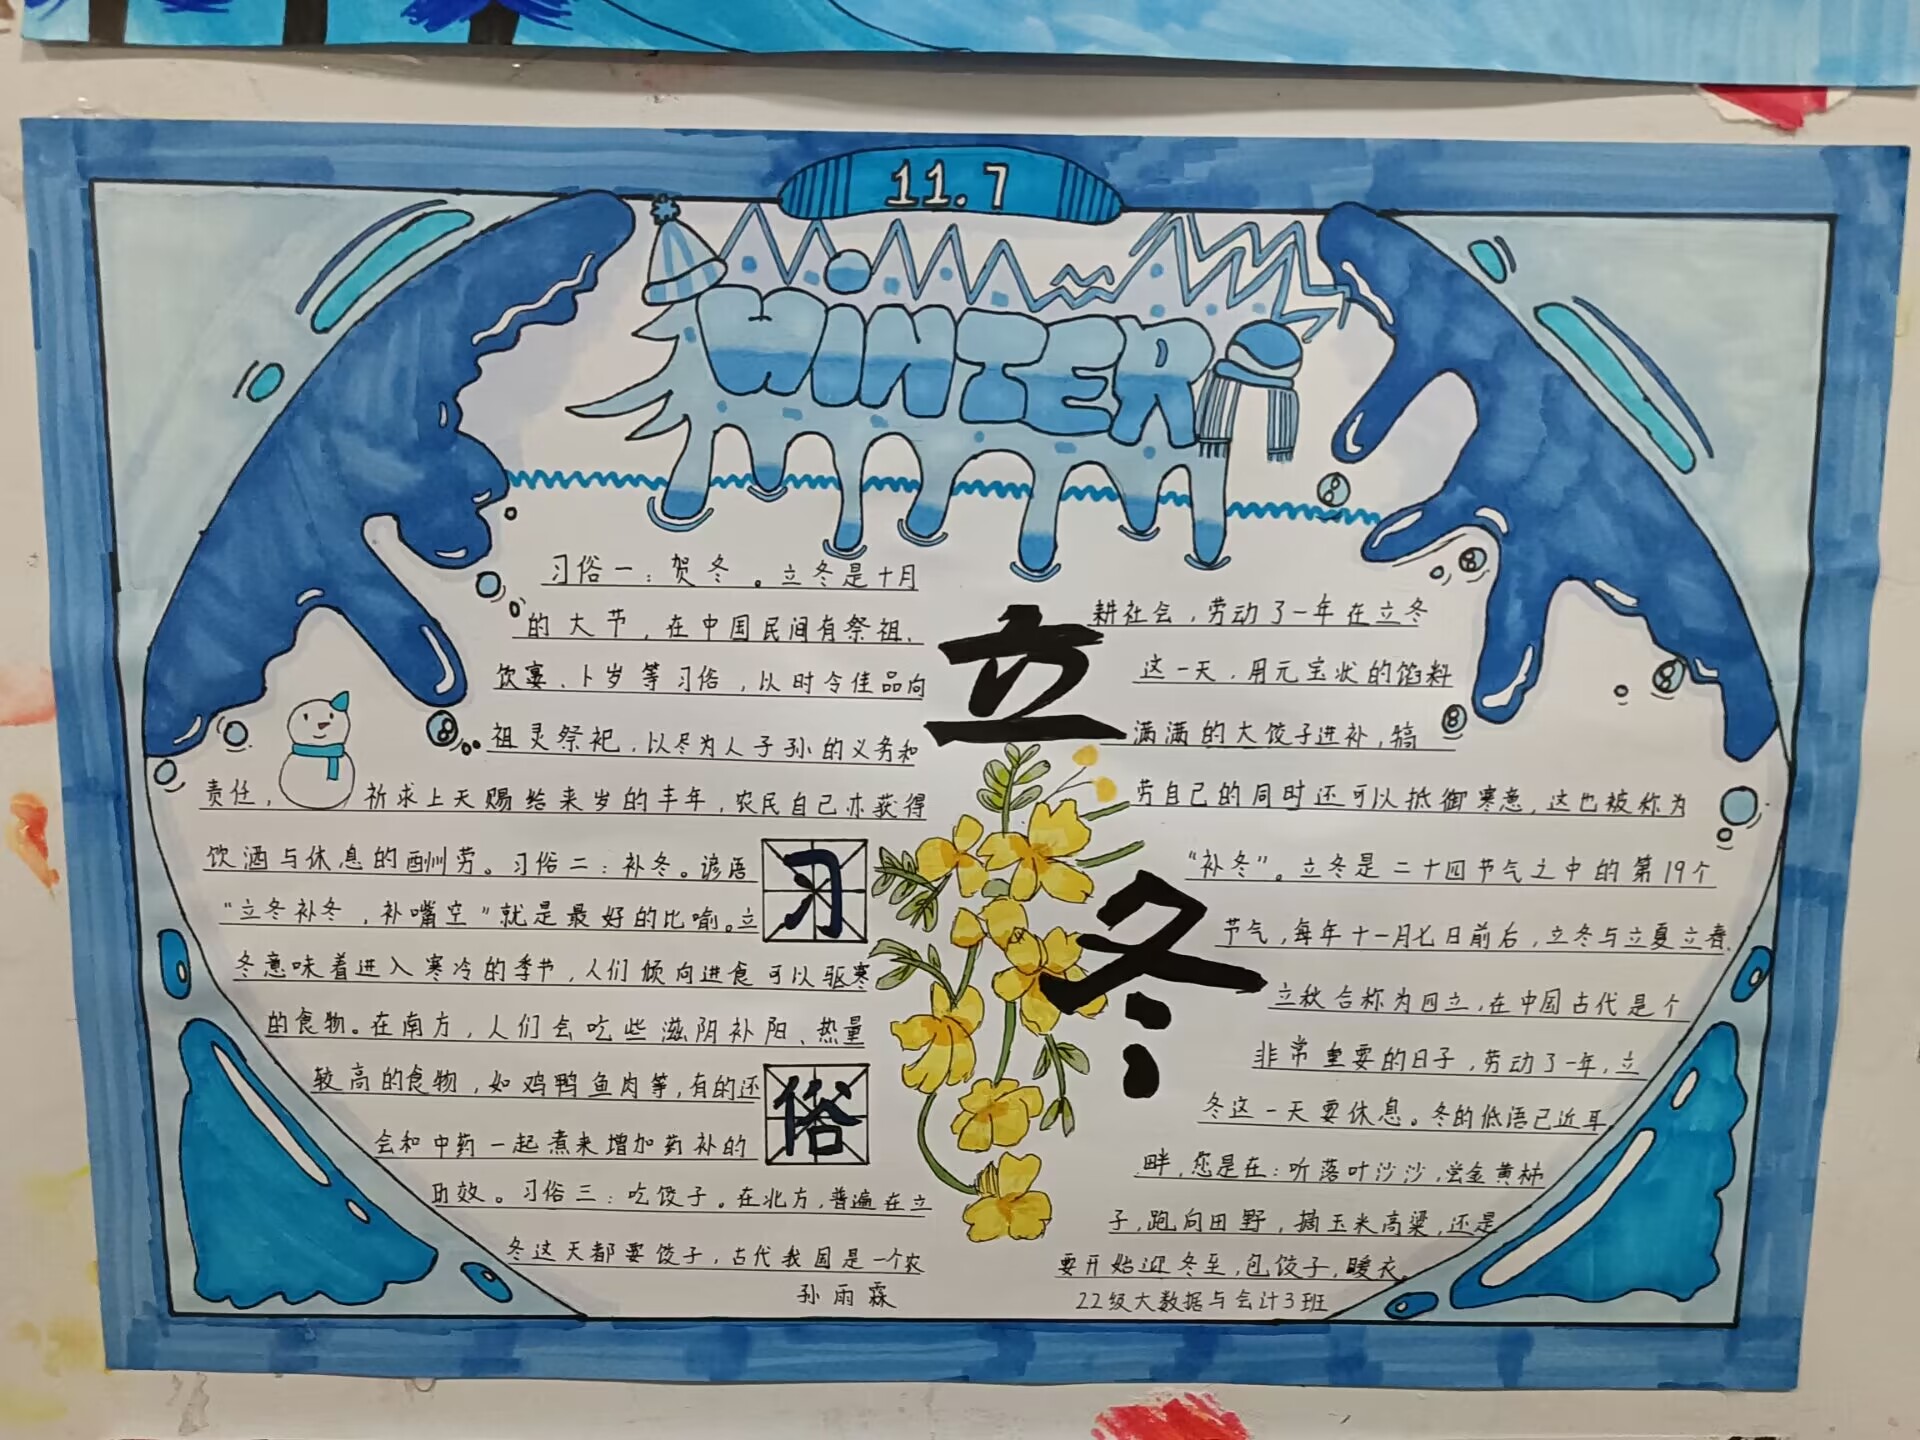 11.7
WINTER
立冬
习俗
习俗一：贺冬。立冬是十月
的大节，在中国民间有祭祖、
饮宴、卜岁等习俗，以时令佳品向
祖灵祭祀，以尽为人子孙的义务和
责任，祈求上天赐给来岁的丰年，农民自己亦获得
饮酒与休息的酬劳。习俗二：补冬。谚语
“立冬补冬，补嘴空”就是最好的比喻。立
冬意味着进入寒冷的季节，人们倾向进食可以驱寒
的食物。在南方，人们会吃些滋阴补阳、热量
较高的食物，如鸡鸭鱼肉等，有的还
会和中药一起煮来增加药补的
功效。习俗三：吃饺子。在北方，普遍在立
冬这天都要饺子，古代我国是一个农
耕社会，劳动了一年在立冬
这一天，用元宝状的馅料
满满的大饺子进补，犒
劳自己的同时还可以抵御寒意，这也被称为
“补冬”。立冬是二十四节气之中的第19个
节气，每年十一月七日前后，立冬与立夏立春、
立秋合称为四立，在中国古代是个
非常重要的日子，劳动了一年，立
冬这一天要休息。冬的低语已近耳
畔，您是在：听落叶沙沙，尝金黄柿
子，跑向田野，摘玉米高粱，还是
要开始迎冬至，包饺子，暖衣。
孙雨霖
22级大数据与会计3班